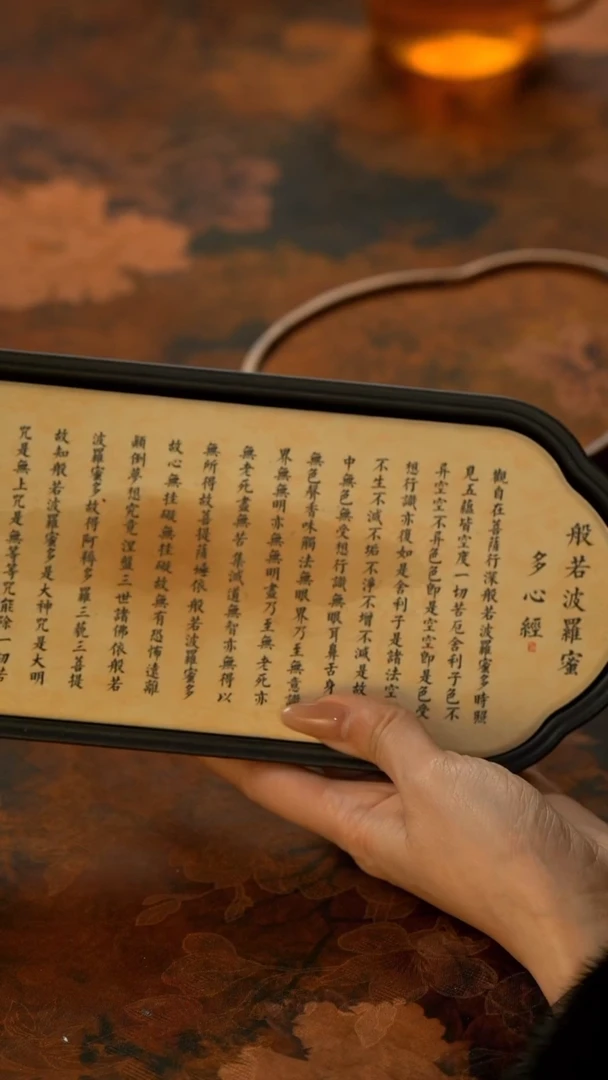 般若波羅蜜
多心經
觀自在菩薩行深般若波羅蜜多時照
見五蘊皆空度一切苦厄舍利子色不
異空空不異色色即是空空即是色受
想行識亦復如是舍利子是諸法空
不生不滅不垢不淨不增不減是故
中無色無受想行識無眼耳鼻舌身
無色聲香味觸法無眼界乃至無意識
界無無明亦無無明盡乃至無老死亦
無老死盡無苦集滅道無智亦無得以
無所得故菩提薩埵依般若波羅蜜多
故心無挂礙無挂礙故無有恐怖遠離
顛倒夢想究竟涅盤三世諸佛依般若
波羅蜜多故得阿耨多羅三藐三菩提
故知般若波羅蜜多是大神咒是大明
咒是無上咒是無等等咒能除一切苦